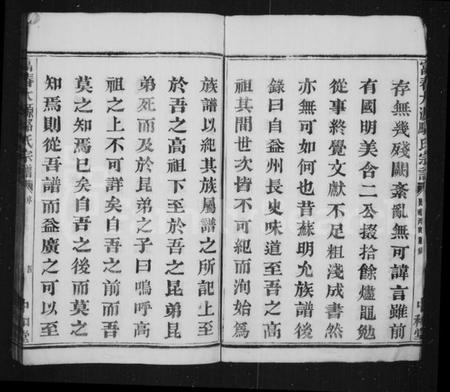 存無幾殘闕紊亂無可諱言雖前
有國明美含二公掇拾餘燼黽勉
從事終覺文獻不足粗淺成書然
亦無可如何也昔蘇明允族譜後
錄曰自益州長史味道至吾之高
祖其間世次皆不可紀而洵始為
族譜以紀其族屬譜之所記上至
於吾之高祖下至於吾之昆弟昆
弟死而及於昆弟之子曰嗚呼高
祖之上不可詳矣自吾之前而吾
莫之知焉已矣自吾之後而莫之
知焉則從吾譜而益廣之可以至
富春大源駱氏宗譜